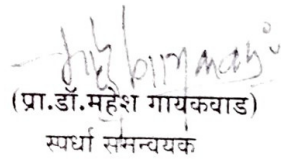 (प्रा.डॉ.महेश गायकवाड)
स्पर्धा समन्वयक